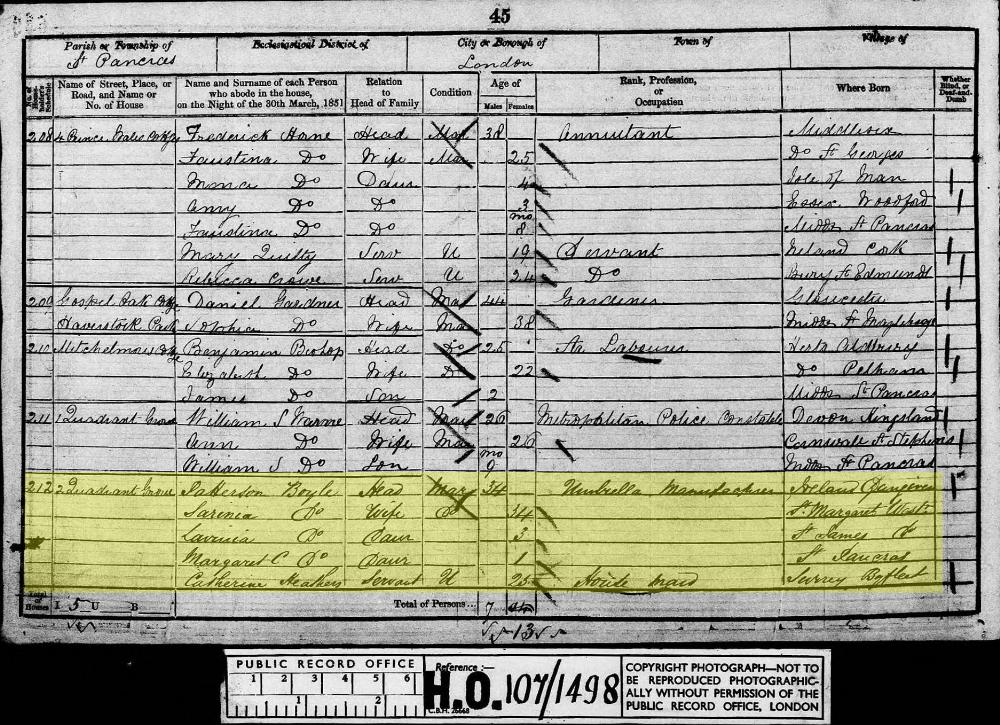 45
Parish or Township of Ecclesiastical District of City or Borough of Town of Village of
St Pancras London
No. of House-holder's Schedule Name of Street, Place, or Road, and Name or No. of House Name and Surname of each Person who abode in the house, on the Night of the 30th March, 1851 Relation to Head of Family Condition Age of Males Females Rank, Profession, or Occupation Where Born Whether Blind, or Deaf-and-Dumb
208 4 Prince Frederick Head Mar 38 Annuitant Middlesex
Faustina Do Wife Mar 25 Do St Georges
Do Daur 4 Isle of Man
Amy Do Do 3 Essex Woodford
Faustina Do Do mo 8 Middx St Pancras
Mary Quilty Serv U 19 Servant Ireland Cork
Rebecca Crowe Serv U 24 Do Bury St Edmunds
209 Gospel Oak Daniel Gardner Head Mar 44 Gardener Gloucester
Haverstock Park Sophia Do Wife Mar 38 Middx St
210 Benjamin Bishop Head Do 25 Ag Labourer Herts Aldbury
Elizabeth Do Wife Do 22 Do Pelham
James Do Son 2 Middx St Pancras
211 1 Quadrant Grove William S Head Mar 26 Metropolitan Police Constable Devon Kingsland
Ann Do Wife Mar 26 Cornwall St Stephens
William S Do Son mo 9 Middx St Pancras
212 2 Quadrant Grove Patterson Boyle Head Mar 34 Umbrella Manufacturer Ireland
Sarenia Do Wife Do 34 St Margaret Westr
Lavinia Do Daur 3 St James Do
Margaret C Do Daur 1 St Pancras
Catherine Heathers Servant U 25 House Maid Surrey Byfleet
Total of Houses I 5 U B Total of Persons... 7
13
PUBLIC RECORD OFFICE
1 2 3 4 5 6
1 2
Reference:—
H.O. 107/1498
C.B.H. 26668
COPYRIGHT PHOTOGRAPH—NOT TO
BE REPRODUCED PHOTOGRAPHIC-
ALLY WITHOUT PERMISSION OF THE
PUBLIC RECORD OFFICE, LONDON